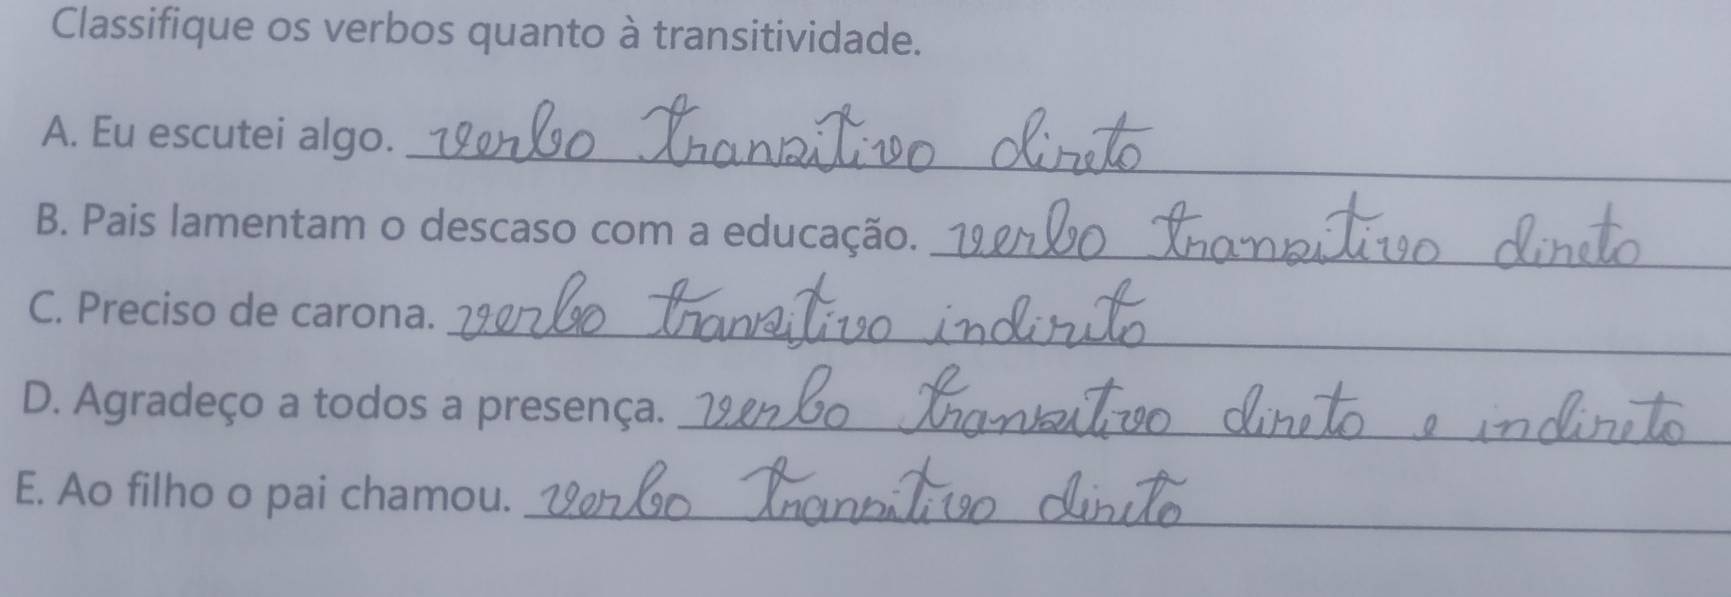 Classifique os verbos quanto à transitividade.
A. Eu escutei algo. verbo transitivo direto
B. Pais lamentam o descaso com a educação. verbo transitivo direto
C. Preciso de carona. verbo transitivo indireto
D. Agradeço a todos a presença. verbo transitivo direto e indireto
E. Ao filho o pai chamou. verbo transitivo direto